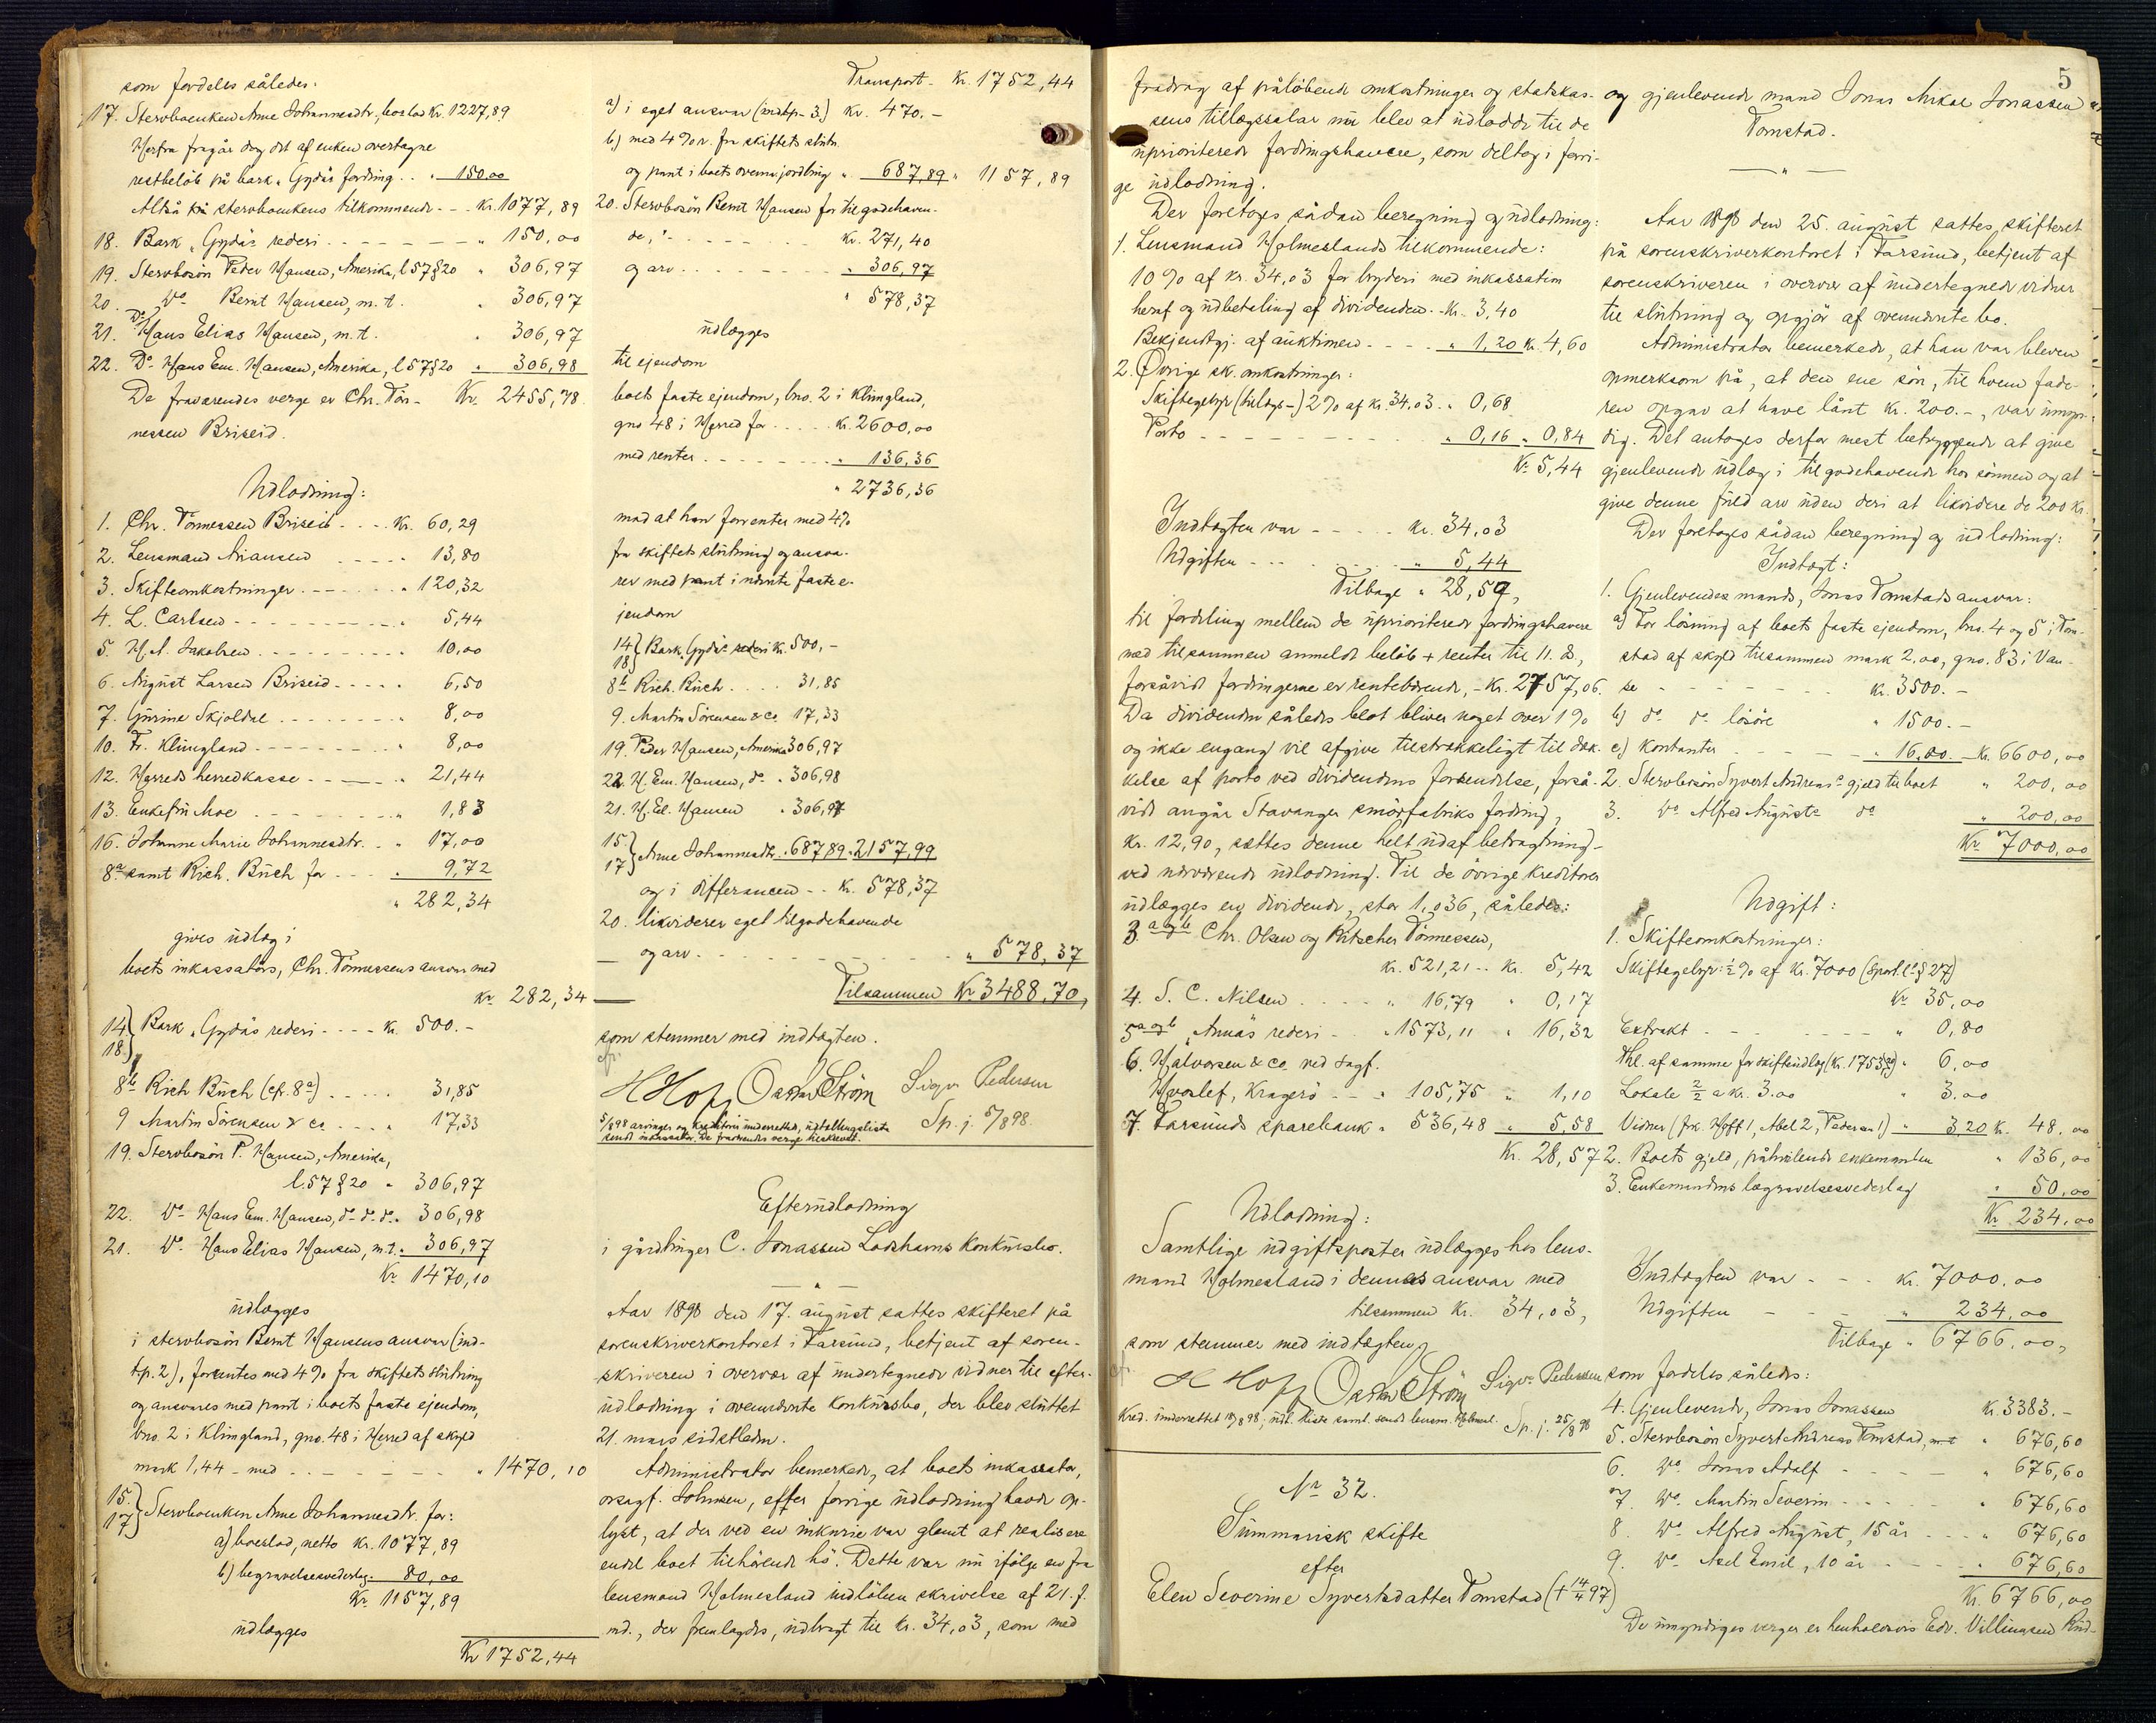 som fordeles således:
17. Stervboenken Anne Johannesdtr., boslod Kr. 1227,89
Herfra fragår dog det af enken overtagne
restbeløb på bark „Gyda's fordring . . „ 150,00
Altså på stervboenkens tilkommende - - Kr. 1077,89
18. Bark „Gyda's rederi - - - - - - „ 150,00
19. Stervbosön Peder Hansen, Amerika, l 57 § 20 „ 306,97
20. Do Bernt Hansen, m. t. „ 306,97
21. Do Hans Elias Hansen, m. t. „ 306,97
22. Do Hans Em. Hansen, Amerika, l 57 § 20 „ 306,98
De fraværendes verge er Chr. Tön- Kr. 2455,78
nessen Briseid.
Udlodning:
1. Chr. Tönnessen Briseid - - - - Kr. 60,29
2. Lensmand Ariansen - - - - - 13,80
3. Skifteomkostninger - - - - - - „ 120,32
4. L. Carlsen - - - - - - - - - - „ 5,44
5. H. A. Jakobsen - - - - - - - 10,00
6. August Larsen Briseid - - - - - 6,50
7. Gurine Skjoldal - - - - - - - „ 8,00
10. Fr. Klungland - - - - - - - - „ 8,00
12. Herreds herredkasse - - - - - „ 21,44
13. Enkefru Moe - - - - - - - - „ 1,83
16. Johanne Marie Johannesdtr. - - „ 17,00
8a samt Rich. Buch for - - - „ 9,72
„ 282,34
gives udlæg i
boets inkassators, Chr. Tönnessens ansvar med
Kr. 282,34
14 } Bark „Gyda's rederi - - - - Kr. 500.-
18 }
8b Rich Buch (cfr. 8a) - - - - - 31,85
9 Martin Sörensen & Co - - - - „ 17,33
19. Stervbosön P. Hansen, Amerika,
l. 57 § 20 „ 306,97
22. Do Hans Em. Hansen, do do do „ 306,98
21. Do Hans Elias Hansen, m. t. „ 306,97
Kr. 1470,10
udlægges
i stervbosön Bernt Hansens ansvar (ind-
t. p. 2), forrentes med 4 % fra skiftets slutning
og ansvares med pant i boets faste ejendom,
bno. 2 i Klungland, gno. 48 i Herred af skyld
mark 1,44 - med - - - - - - - - „ 1470,10
15 } Stervboenken Anne Johannesdtr. for:
17 }
a) boeslod, netto Kr. 1077,89
b) begravelsesvederlag - 80,00
Kr. 1157,89
udlægges
Kr. 1752,44
Transport - Kr. 1752,44
a) i eget ansvar (indtp. 3.) Kr. 470.-
b) med 4 % r. fra skiftets slutn.
og pant i boets ovennv. jordbrug „ 687,89 „ 1157,89
20. Stervbosön Bernt Hansen for tilgodehaven-
de, - - - - - - - - Kr. 271,40
og arv - - - - - - - - „ 306,97
„ 578,37
udlægges
til ejendom
boets faste ejendom, bno. 2 i Klungland,
gno 48 i Herred for - - - - - Kr. 2600,00
med renter - - - - - - - - „ 136,36
„ 2736,36
mod at han forrenter med 4%
fra skiftets slutning og ansva-
rer med pant i nævnte faste e-
jendom
14 } Bark „Gyda's rederi Kr. 500,-
18 }
8b Rich. Buch - - - - 31,85
9. Martin Sörensen & Co. 17,33
19. Peder Hansen, Amerika 306,97
22. H. Em. Hansen, do „ 306,98
21. H. El. Hansen „ 306,97
15 } Anne Johannesdtr. „ 687,89 „ 2157,99
17 }
og i differancen - - Kr. 578,37
20. likviderer eget tilgodehavende
og arv - - - - - - - - - - „ 578,37
Tilsammen Kr. 3488,70,
som stemmer med indtægten.
cfr.
H Hoff Oskar Ström Sigv. Pedersen
5/8 98 arvinger og kreditorer underrettet, udtællingsliste
sendt inkassator. De fraværendes verge tilskrevet. Sp. j. 5/8 98.
Efterudlodning
i gårdbruger C. Jonassen Lodshavns konkursbo.
— „ —
Aar 1898 den 17. august sattes skifteret på
sorenskriverkontoret i Farsund, betjent af soren-
skriveren i overvær af undertegnede vidner til efter-
udlodning i ovennævnte konkursbo, der blev sluttet
21. mars sidstleden.
Administrator bemerkede, at boets inkassator,
orsagf. Johnsen, efter forrige udlodning havde op-
lyst, at der ved en inkurie var glemt at realisere
endel boet tilhørende hö. Dette var nu ifølge en fra
lensmand Holmesland indløben skrivelse af 21. f.
md., der fremlagdes, udbragt til kr. 34,03, som med
5
fradrag af påløbende omkostninger og statskas-
sens tillægssalær nu blev at udlodde til de
uprioriterede fordringshavere, som deltog i forri-
ge udlodning.
Der foretoges sådan beregning og udlodning:
1. Lensmand Holmeslands tilkommende:
10 % af kr. 34,03 for bryderi med inkassation
heraf og udbetaling af dividenden - Kr. 3,40
Bekjendtgj. af auktionen - - - - „ 1,20 Kr. 4,60
2. Övrige sk. omkostninger:
Skiftegebyr (tillægs-) 2 % af kr. 34,03 „ 0,68
Porto - - - - - - - - - - „ 0,16 „ 0,84
Kr. 5,44
Indtægten var - - - - - Kr. 34,03
Udgiften - - - - - - - „ 5,44
Tilbage „ 28,59,
til fordeling mellem de uprioriterede fordringshavere
med tilsammen anmeldt beløb + renter til 11. 2.,
forsåvidt fordringerne er rentebærende, - Kr. 2757,06.
Da dividenden således blot bliver noget over 1 %
og ikke engang vil afgive tilstrækkeligt til dæk-
kelse af porto ved dividendens forsendelse, forså-
vidt angår Stavanger smörfabriks fordring,
kr. 12,90, sættes denne helt ud af betragtning
ved nærværende udlodning. Til de övrige kreditorer
udlægges en dividende, stor 1,036, således:
3. a og b Chr. Olsen og Putscher Tönnessen,
Kr. 521,21 - - Kr. 5,42
4. S. C. Nilsen - - - - „ 16,79 „ 0,17
5 a og b „Anna's rederi - „ 1573,11 „ 16,32
6. Halvorsen & Co. ved sagf.
Hvoslef, Kragerö - - „ 105,75 „ 1,10
7. Farsunds sparebank „ 536,48 „ 5,58
Kr. 28,57
Udlodning:
Samtlige udgiftsposter udlægges hos lens-
mand Holmesland i dennes ansvar med
tilsammen Kr. 34,03,
som stemmer med indtægten,
cfr.
H Hoff Oskar Ström Sigv. Pedersen
Kred. underrettet 18/8 98, udl. liste saml. sendt lensm. Holmesl. Sp. j. 25/8 98
No 32.
Summarisk skifte
efter
Elen Severine Syvertsdatter Tomstad († 14/4 97)
og gjenlevende mand Jonas Mikal Jonassen
Tomstad.
— „ —
Aar 1898 den 25. august sattes skifteret
på sorenskriverkontoret i Farsund, betjent af
sorenskriveren i overvær af undertegnede vidner
til slutning og opgjör af ovennævnte bo.
Administrator bemerkede, at han var bleven
opmerksom på, at den ene sön, til hvem fade-
ren opgav at have lånt kr. 200.-, var umyn-
dig. Det antages derfor mest betryggende at give
gjenlevende udlæg i tilgodehavende hos sönnen og at
give denne fuld arv uden deri at likvidere de 200 kr.
Der foretoges sådan beregning og udlodning:
Indtægt:
1. Gjenlevendes mands, Jonas Tomstads ansvar:
a) For lösning af boets faste ejendom, bno. 4 og 5 i Tom-
stad af skyld tilsammen mark 2.00, gno. 83 i Van-
se - - - - - - - - Kr. 3500.-
b) do do lösöre „ 1500.-
c) Kontanter - - - - - „ 1600 - Kr. 6600,00
2. Stervbosön Syvert Andreas' gjeld til boet „ 200,00
3. Do Alfred Augusts do „ 200,00
Kr. 7000,00
Udgift:
1. Skifteomkostninger:
Skiftegebyr: ½ % af Kr. 7000 (Sportl. l. § 27)
Kr. 35,00
Extrakt - - - - - - - „ 0,80
Thl. af samme for skifteudlæg (Kr. 1753) „ 6,00
Lokale 2/2 a kr. 3.00 „ 3.00
Vidner (frk. Hoff 1, Abel 2, Pedersen 1) „ 3,20 Kr. 48,00
2. Boets gjeld, påhvilende enkemanden „ 136,00
3. Enkemandens begravelsesvederlag „ 50,00
Kr. 234,00
Indtægten var - - - Kr. 7000,00
Udgiften - - - „ 234,00
Tilbage „ 6766,00,
som fordeles således:
4. Gjenlevende, Jonas Jonassen Kr. 3383.-
5. Stervbosön Syvert Andreas Tomstad, m. t. „ 676,60
6. Do Jonas Adolf - - - - - „ 676,60
7. Do Martin Severin - - - - - „ 676,60
8. Do Alfred August, 15 år - - - „ 676,60
9. Do Axel Emil, 10 år - - - - „ 676,60
Kr. 6766,00
De umyndiges verger er henholdsvis Edv. Villumsen Rud-